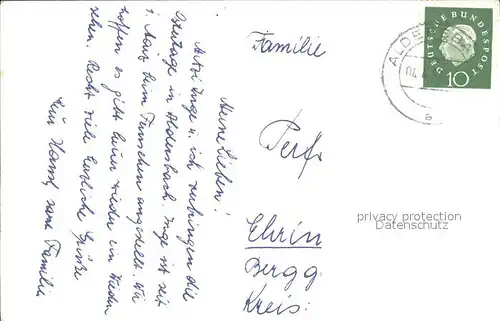 Meine Lieben!
Mutti Inge u. ich verbringen die
Ostertage in Aldersbach. Inge ist seit
1. März beim Finanzamt angestellt. Wir
hoffen es gibt heuer wieder ein Wieder
sehen. Recht viele herzliche Grüsse
Eure Familie
Familie
Ehrin
Bergg.
Kreis:
ALDE
04.
a
DEUTSCHE BUNDESPOST
10
privacy protection
Datenschutz